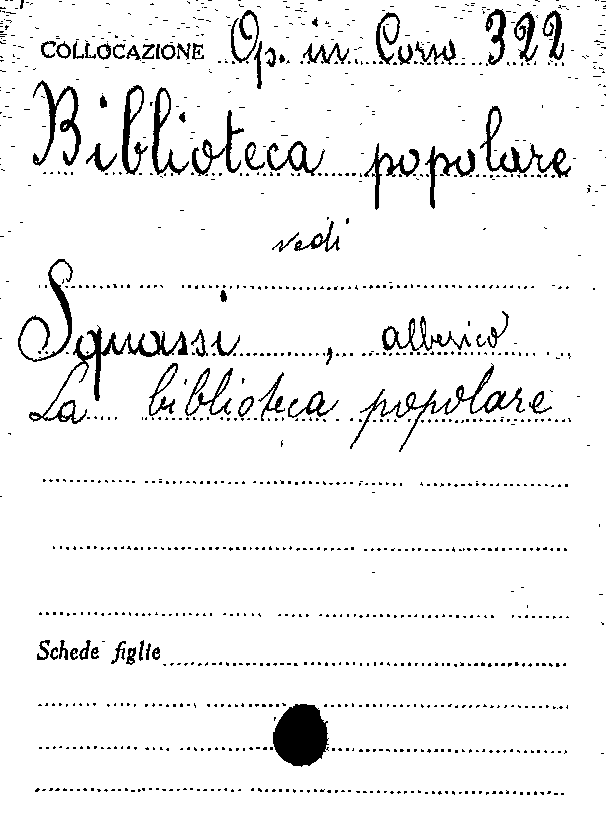 COLLOCAZIONE Op. in Corso 322
Biblioteca popolare
vedi
Squassi, alberico
La biblioteca popolare
Schede figlie